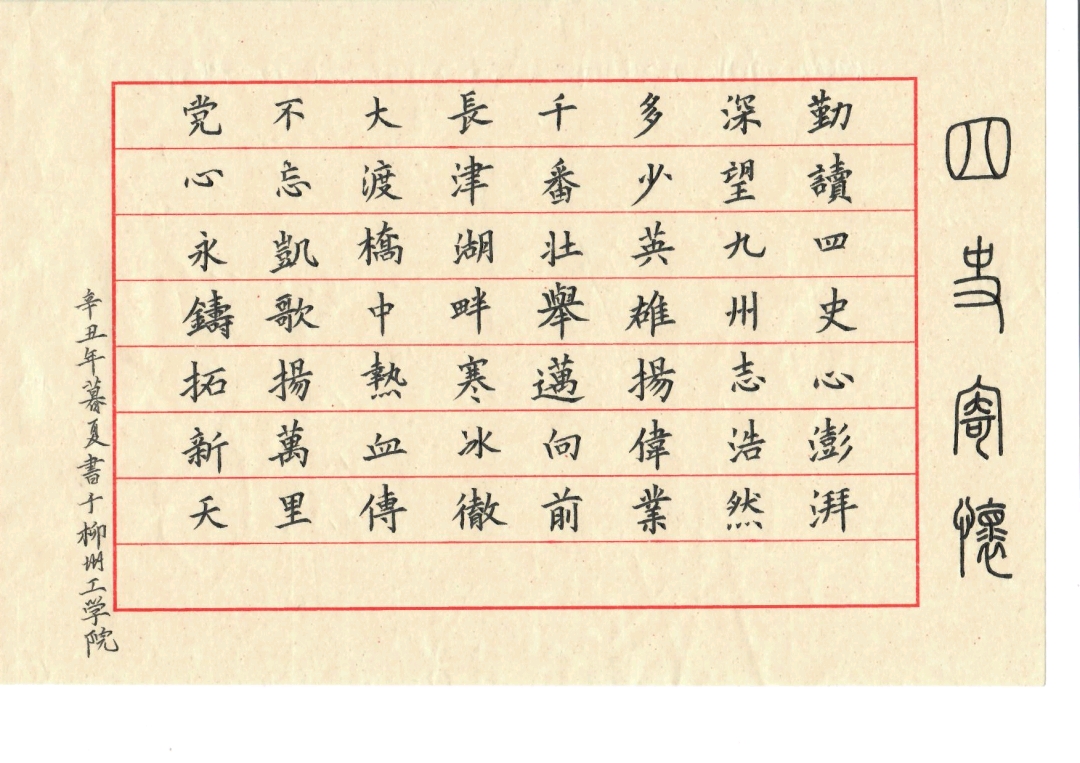 四史寄懷
勤讀四史心澎湃
深望九州志浩然
多少英雄揚偉業
千番壯舉邁向前
長津湖畔寒冰徹
大渡橋中熱血傳
不忘凱歌揚萬里
党心永鑄拓新天
辛丑年暮夏書于柳州工学院